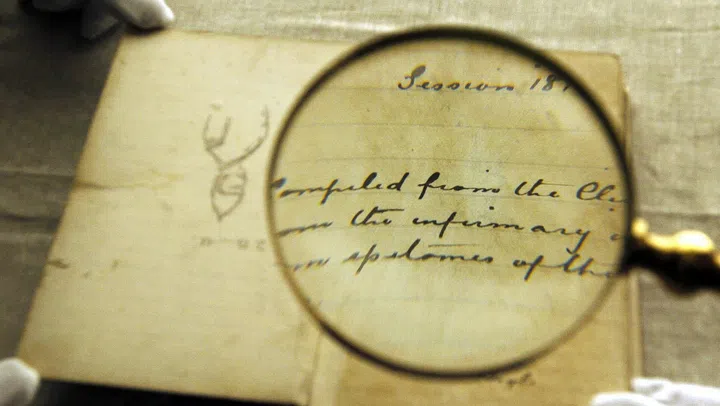 Session 18
Compiled from the Cli
the infirmary
epitomes of the